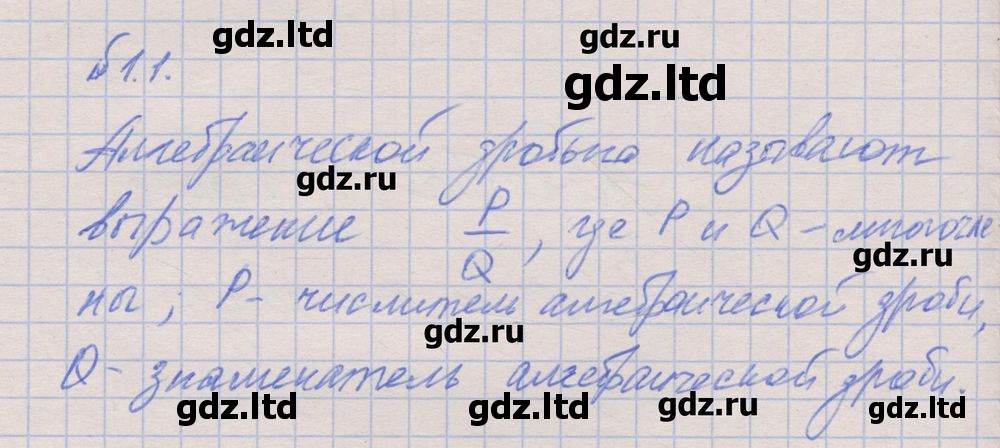 gdz.ltd
gdz.ru
№1.1.
gdz.ltd
Алгебраической дробью называют
gdz.ru
выражение P/Q, где P и Q – многочле
gdz.ru
ны; P – числитель алгебраической дроби,
gdz.ru
Q – знаменатель алгебраической дроби.
gdz.ltd
gdz.ltd
gdz.ru
gdz.ltd